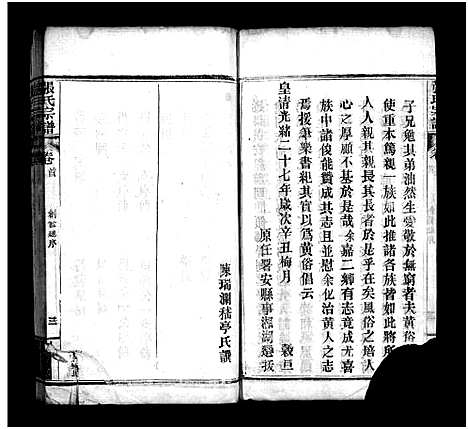 子兄勉其弟油然生愛敬於無窮者夫黃俗
使重本篤親一族如此推諸各族皆如此將所
人人親其親長其長者於是乎在矣風俗之培人
心之厚顧不基於是哉余嘉二鄉有志竟成尤喜
族中諸俊能贊成其志且慰余化治黃人之志
焉援筆樂書親其宜以爲黃俗倡云
皇清光緒二十七年歲次辛丑梅月 穀旦
原任署安縣事湘湖選拔
陳瑞瀾嵇亭氏譔
張氏宗譜 卷首 創修總序 三